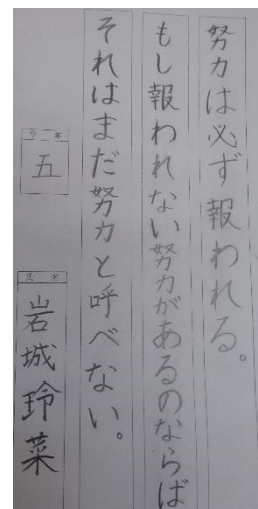 努力は必ず報われる。
もし報われない努力があるのならば
それはまだ努力と呼べない。
学年
五
氏名
岩城玲菜